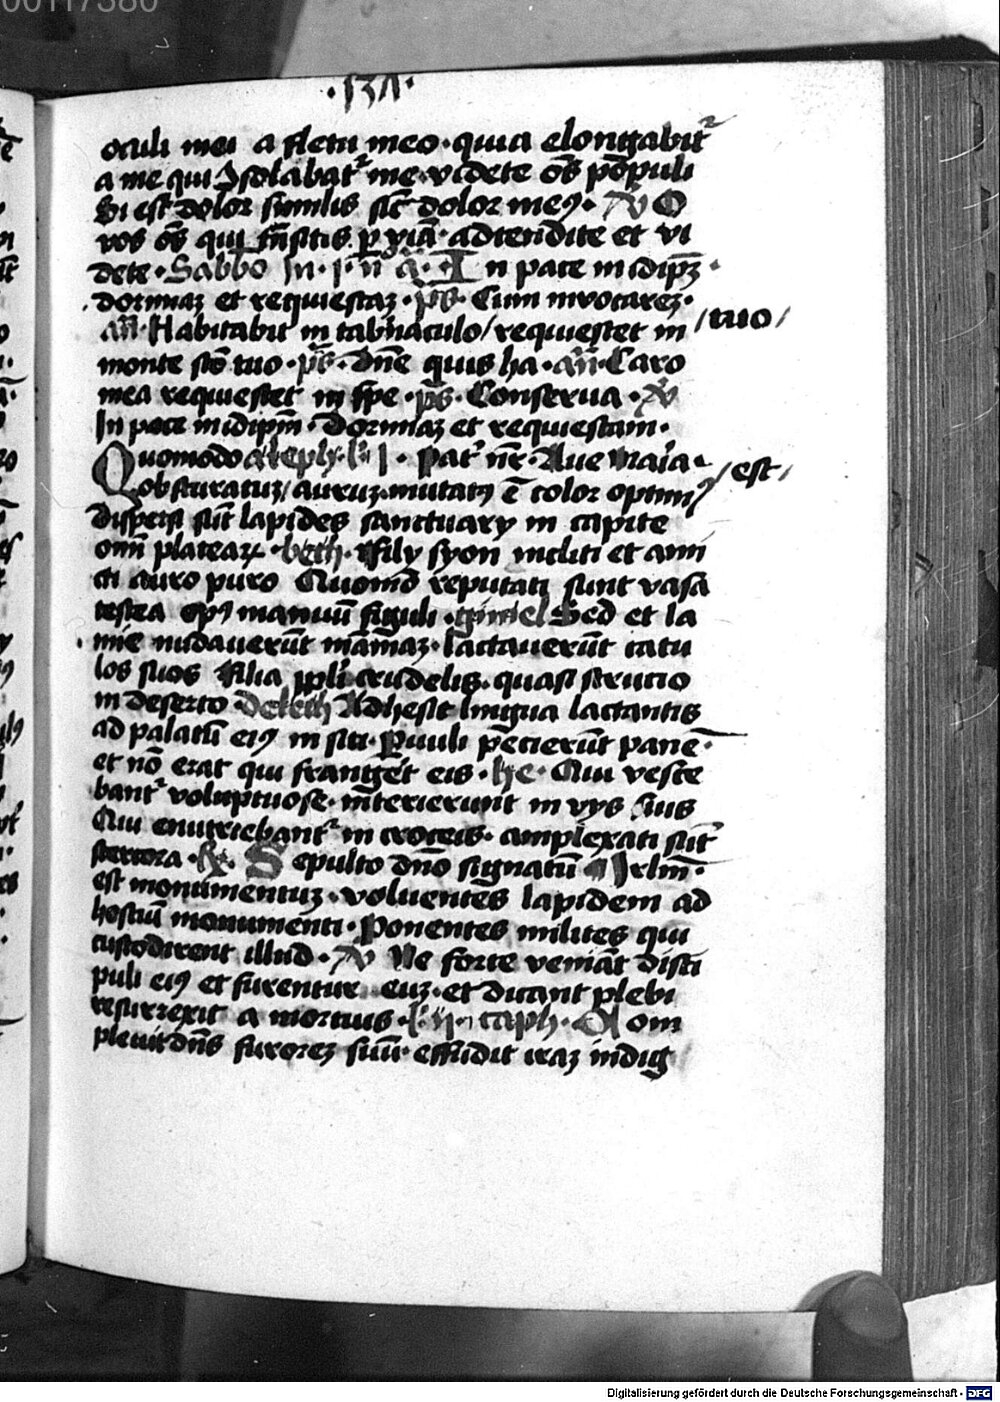 00117380
·131·
oculi mei a fletu meo · quia elongabit᷑
a me qui ɔsolabat᷑ me · videte oēs pōpuli
Si est dolor similis sic̄ dolor meꝰ · ℣ O
vos oēs qui trāsitis ꝑ viā · adtendite et vi
dete · Sabbo In · i · n̄ a͞ · In pace in idipꝫ ·
dormiaꝫ et requiescaꝫ · ps̄ · Cum invocareꝫ ·
an̄ · Habitabit in tab̄naculo / requiescet in / tuo /
monte sc̄o tuo · ps̄ · Dn̄e quis ha · an̄ · Caro
mea requiescet in spe · ps̄ · Conserva · ℣
In pace in idipm̄ · Dormiaꝫ et requiescam ·
Quomodo aleph · l̄ı I · Pat᷑ nr̄ · Ave Maria · / est /
obscuratuꝫ / auruꝫ · mutatꝰ ē color optimꝰ /
dispersi sūt lapides sanctuarij in capite
om̄i platearꝝ · beth · Filij syon incliti et ami
cti auro puro Quom̄o reputati sunt vasa
testea opꝰ manuū figuli · gimel Sed et la
mie nudaverūt māmaꝫ · lactaverūt catu
los suos Filia ppl̄i crudelis · quasi strucio
in deserto · deleth Adhesit lingua lactantis
ad palatū eiꝰ in siti · Ꝑvuli pēcierūt panē ·
et nō erat qui frangēt eis · he · Qui vesce
bant᷑ voluptuose · int̄erierunt in vijs suis
Qui enutriebant᷑ in croceis · amplexati sūt
stercora · ℟ · Sepulto dn̄o signatū Jrlm̄ ·
est monumentuꝫ · volventes lapidem ad
hostiū monumenti · Ponentes milites qui
custodirent illud · ℣ Ne forte veniāt disci
puli eiꝰ et furentur euꝫ · et dicant plebi
resurrexit a mortuis · l̄ı ij · caph · Com
plevit dn̄s furoreꝫ suū · effudit iraꝫ indig
Digitalisierung gefördert durch die Deutsche Forschungsgemeinschaft - DFG